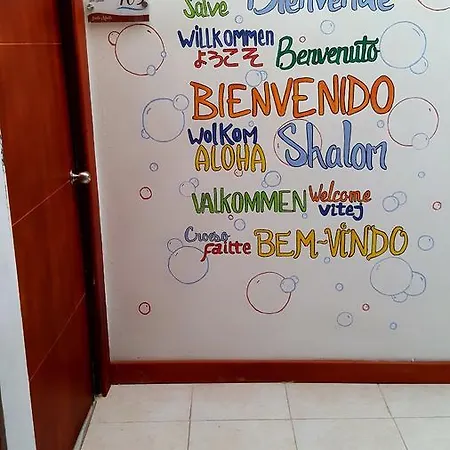 Salve Bienvenue
Willkommen
ようこそ Benvenuto
BIENVENIDO
Wolkom
ALOHA Shalom
VALKOMMEN Welcome
vitej
Croeso
failte BEM-VINDO